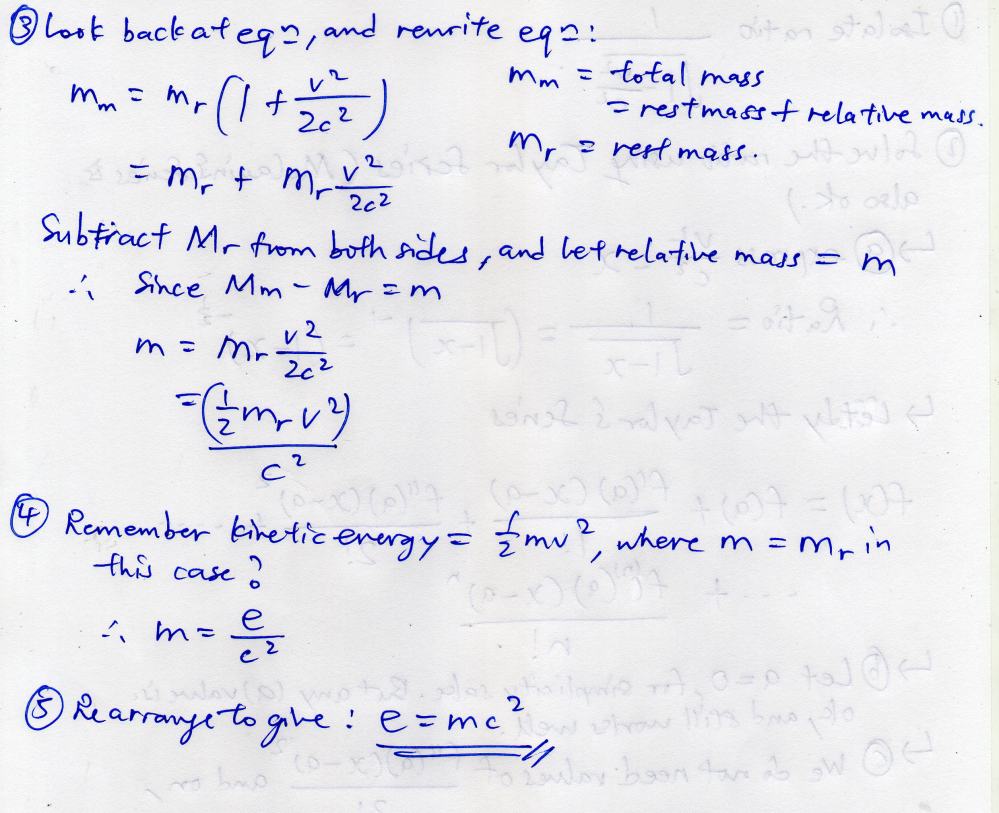 ③ Look back at eqn, and rewrite eqn:
m_m = m_r (1 + v²/2c²)
m_m = total mass
= rest mass + relative mass.
m_r = rest mass.
= m_r + m_r v²/2c²
Subtract M_r from both sides, and let relative mass = m
∴ Since M_m - M_r = m
m = m_r v²/2c²
= (½ m_r v²)/c²
④ Remember kinetic energy = ½mv², where m = m_r in
this case?
∴ m = e/c²
⑤ Rearrange to give: e = mc²